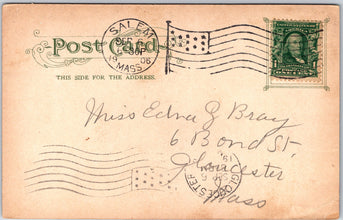 Post Card
THIS SIDE FOR THE ADDRESS.
SALEM
MASS
06
ONE CENT
Miss Edna G Bray
6 Bond St
Gloucester
Mass